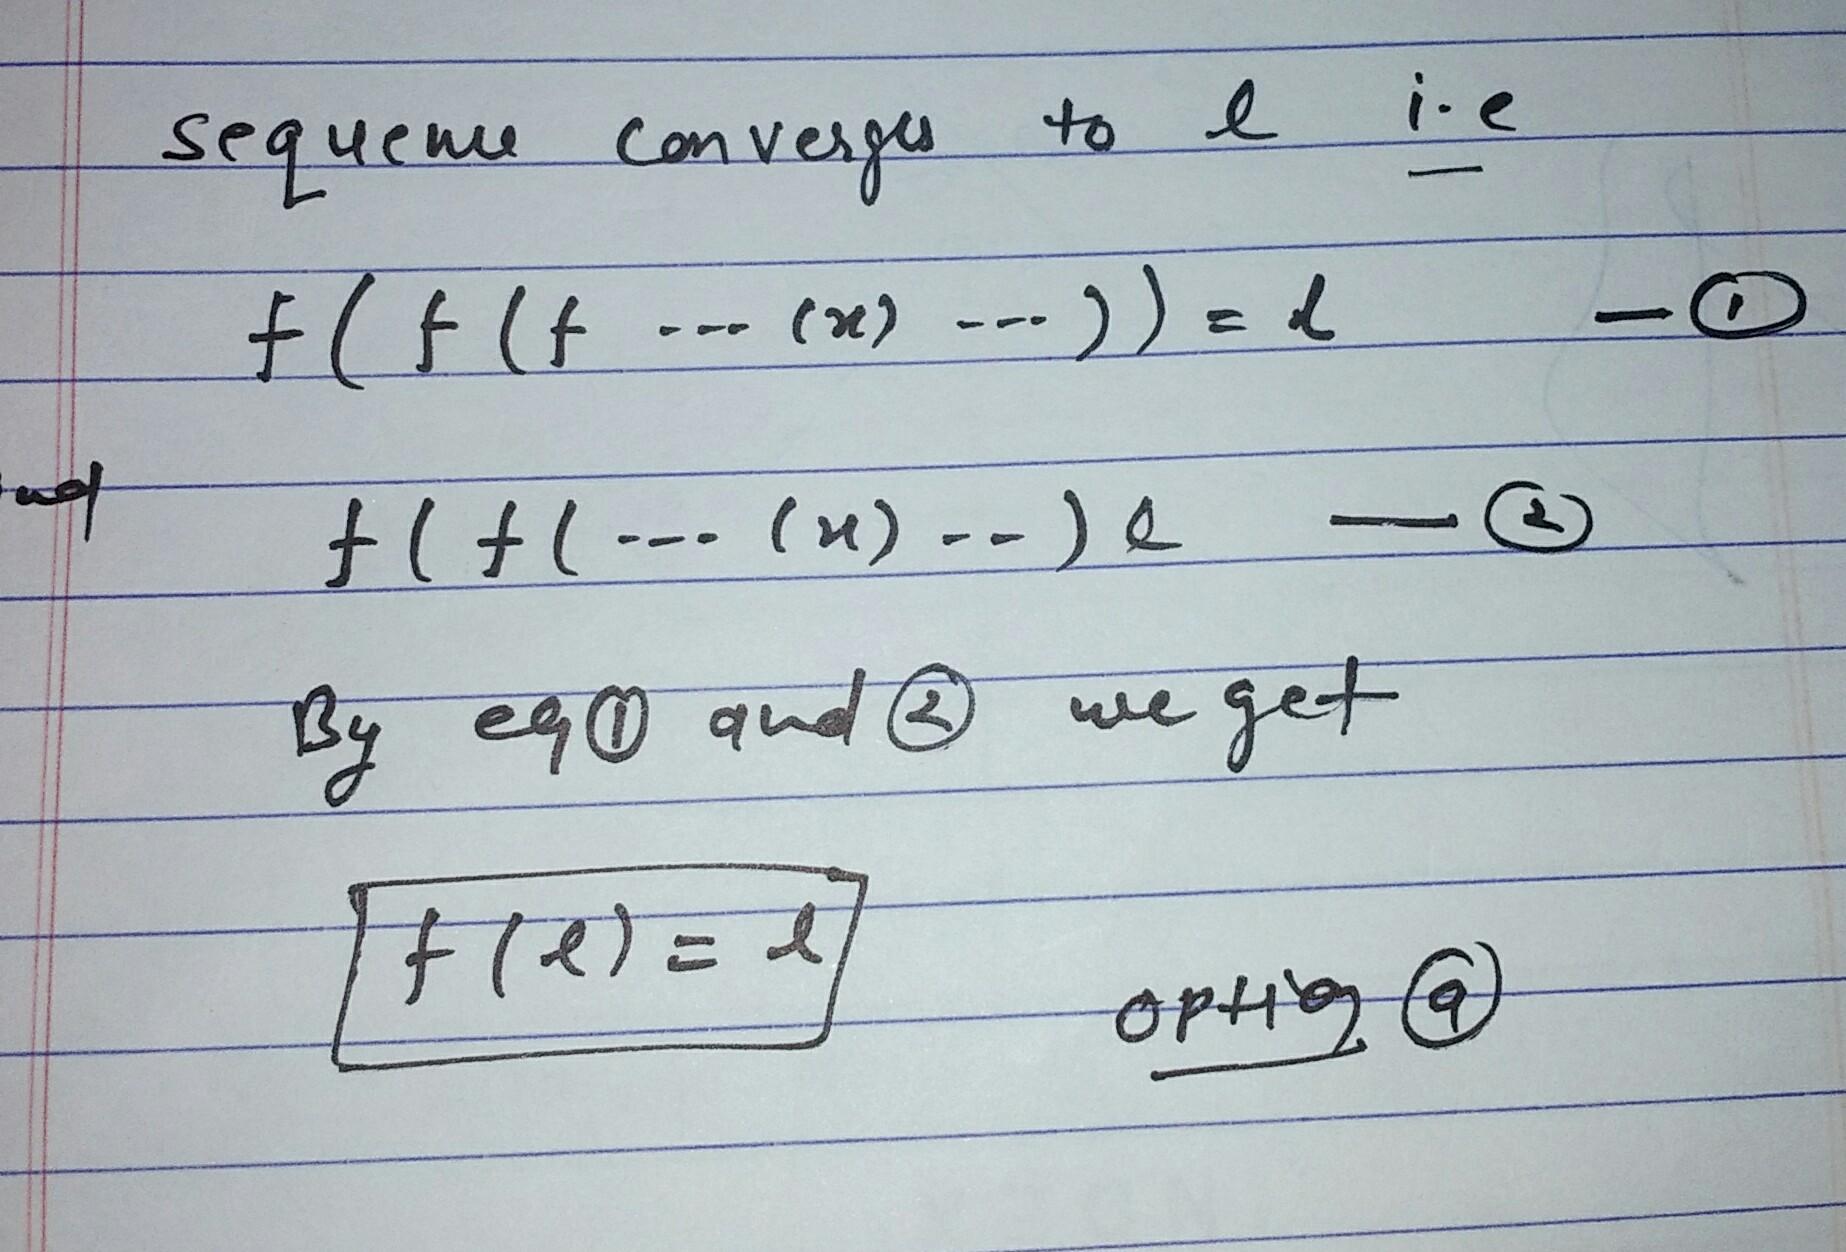 sequence converges to l i.e
f(f(f --- (x) ---)) = l — ①
and f(f(--- (x) --) l — ②
By eq ① and ② we get
f(l) = l
option ⓐ